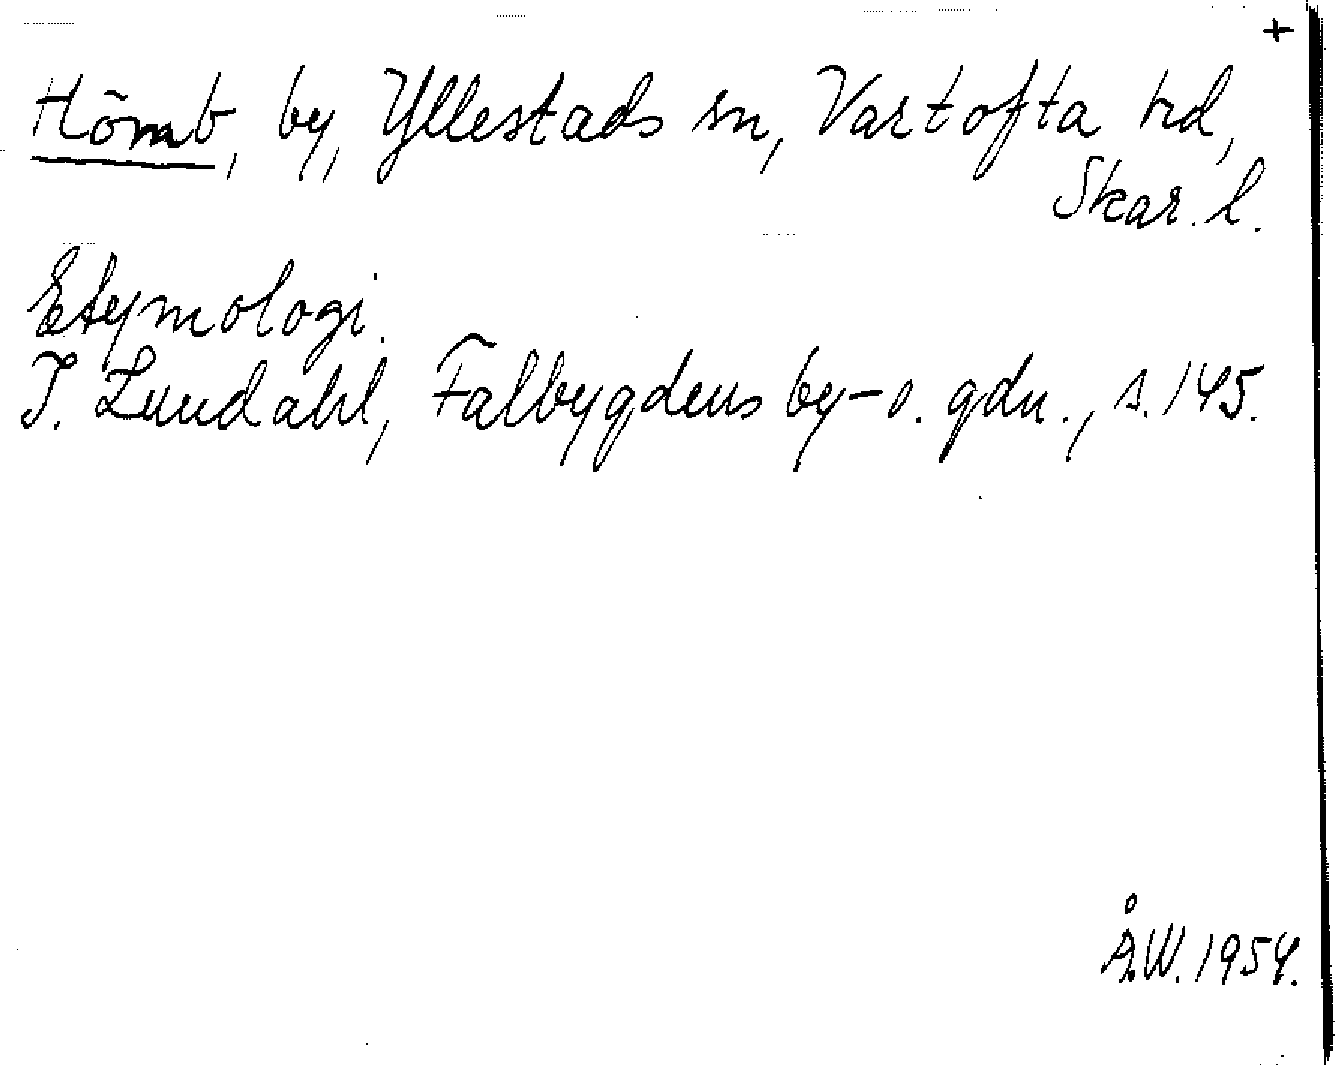 +
Hömb, by, Yllestads sn, Vartofta hd,
Skar. l.
Etymologi.
I. Lundahl, Falbygdens by- o. gdn., s. 145.
Å.W. 1954.